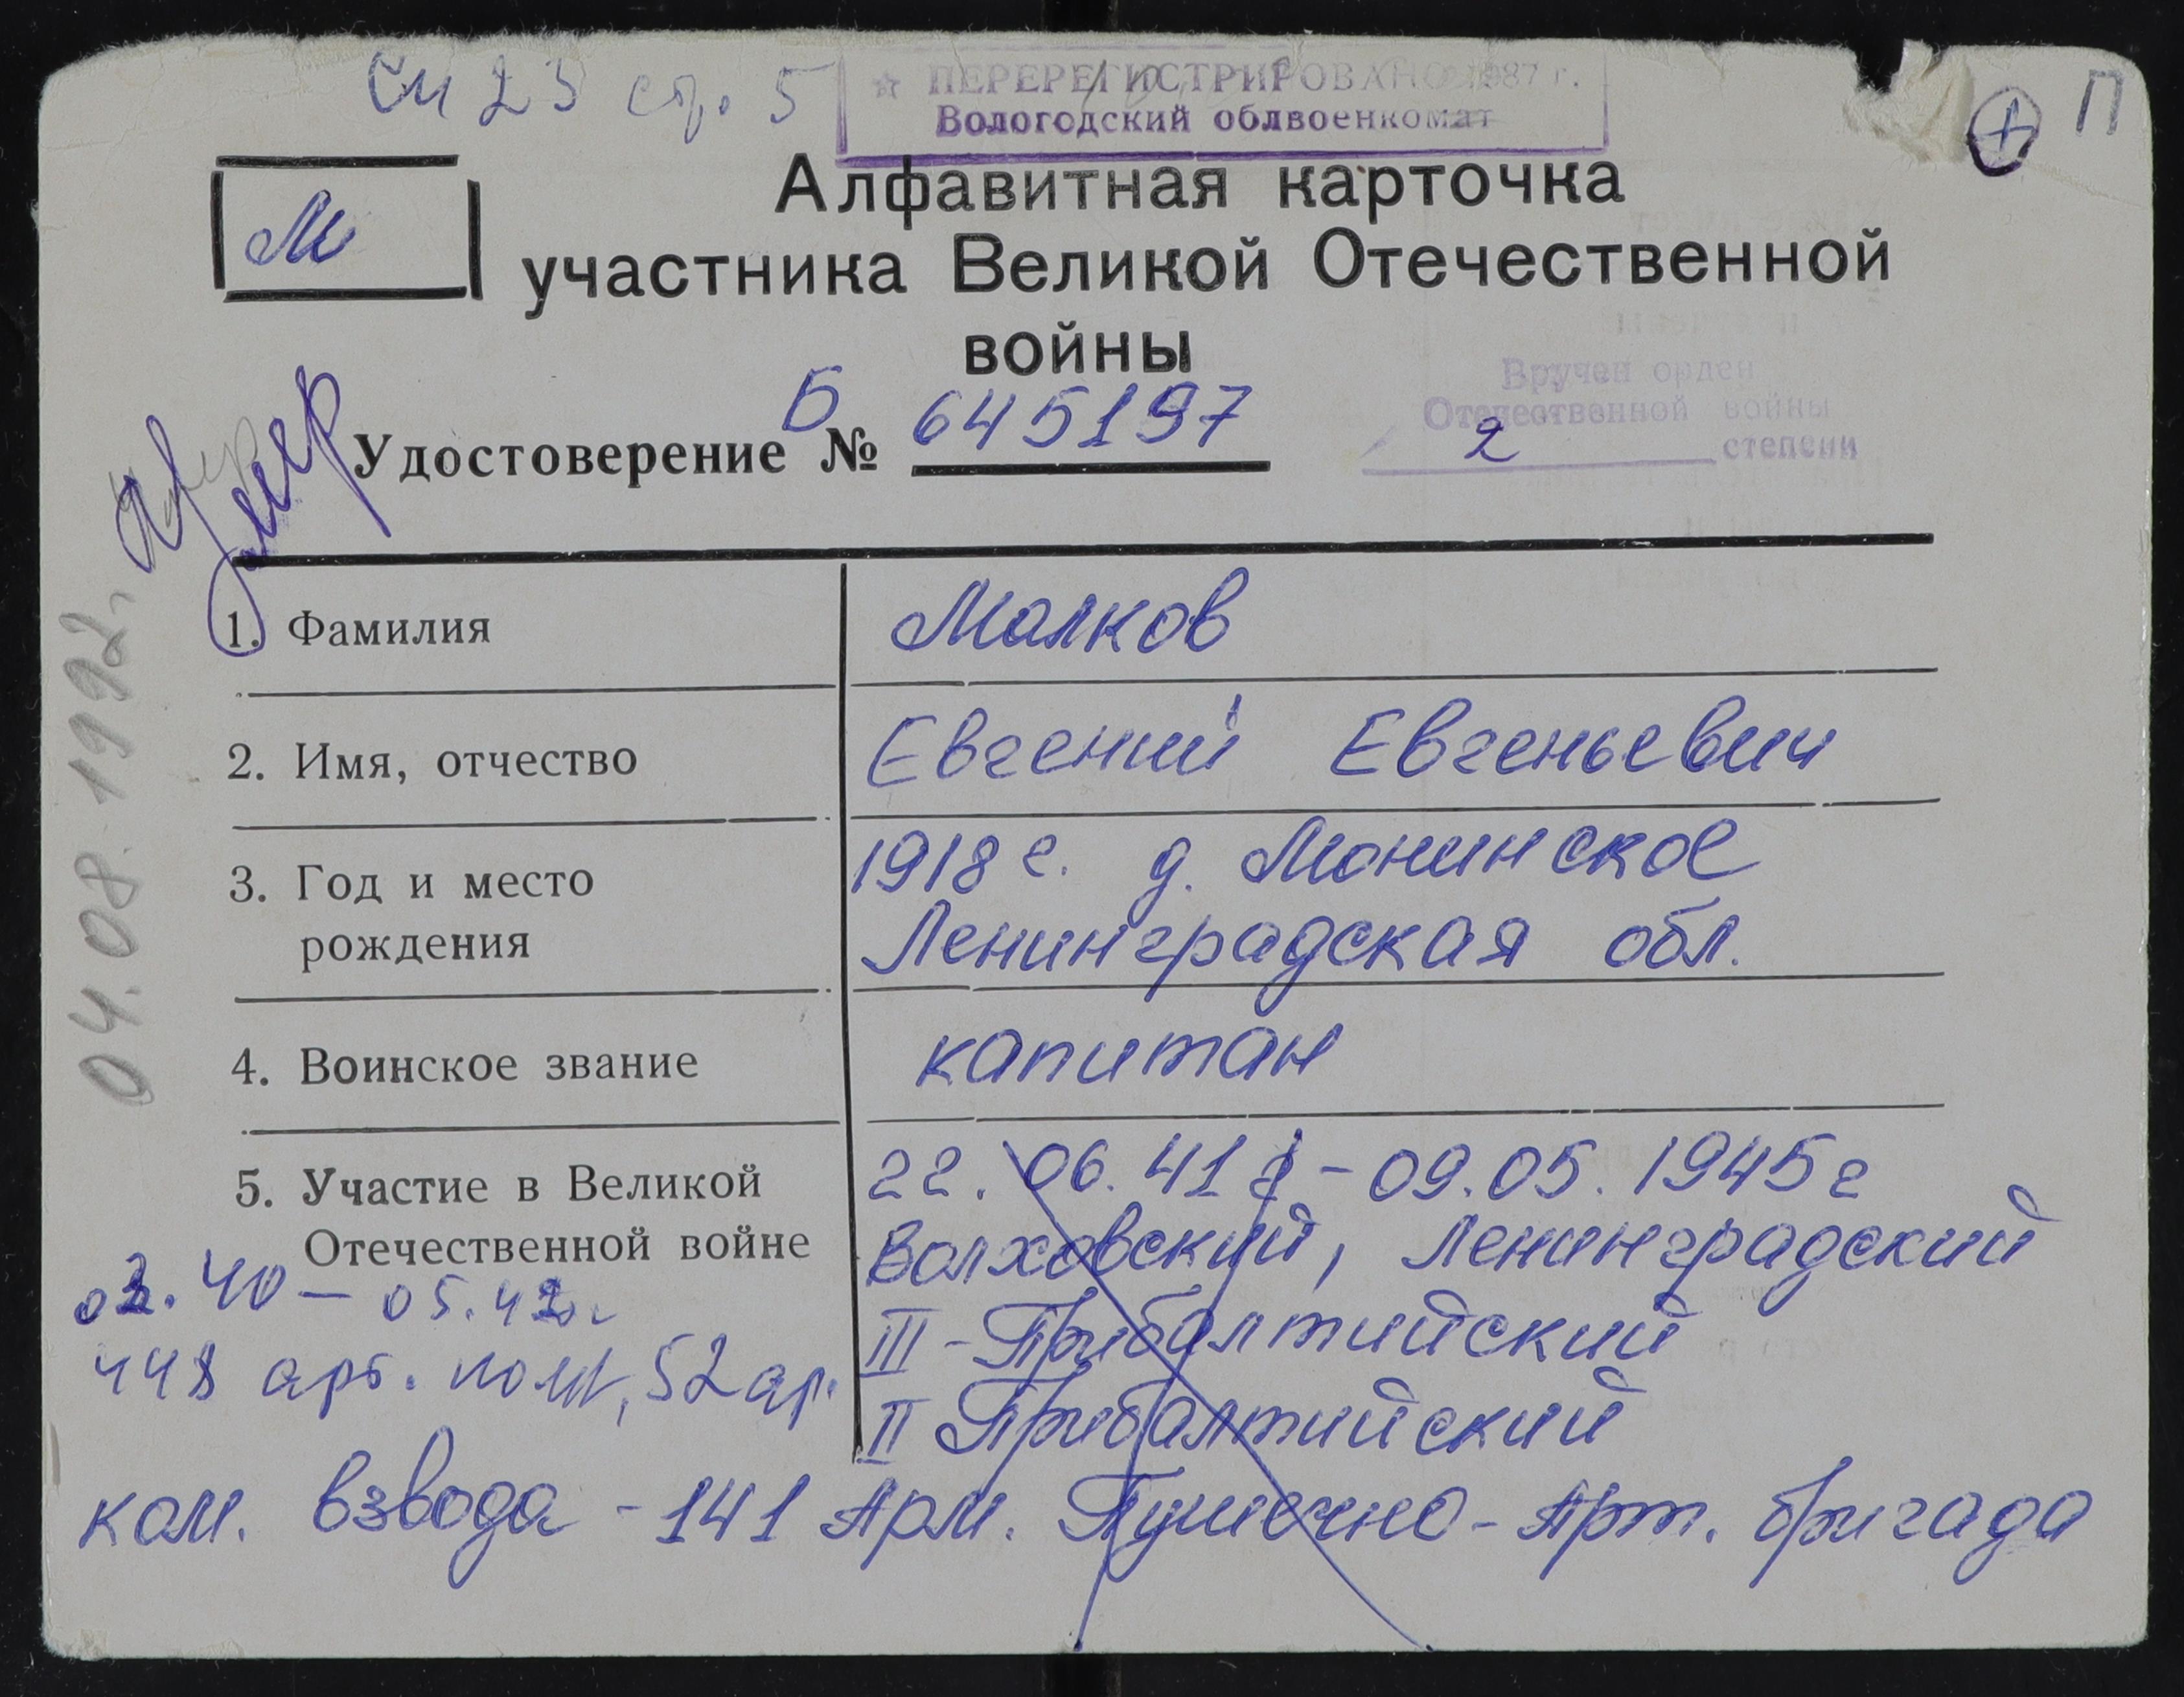 См 23 стр. 5
☆ ПЕРЕРЕГИСТРИРОВАНО 1987 г.
Вологодский облвоенкомат
+ П
М
Алфавитная карточка
участника Великой Отечественной
войны
Вручен орден
Отечественной войны
2 степени
Удостоверение Б № 645197
умер
04.08.1992г.
1. Фамилия Малков
2. Имя, отчество Евгений Евгеньевич
3. Год и место рождения 1918 г. д. Монинское
Ленинградская обл.
4. Воинское звание капитан
5. Участие в Великой Отечественной войне 22.06.41 г - 09.05.1945 г
Волховский, Ленинградский
III - Прибалтийский
II Прибалтийский
02.40 - 05.42г
448 арт. полк, 52 ар.
ком. взвода - 141 Арм. Пушечно - Арт. бригада